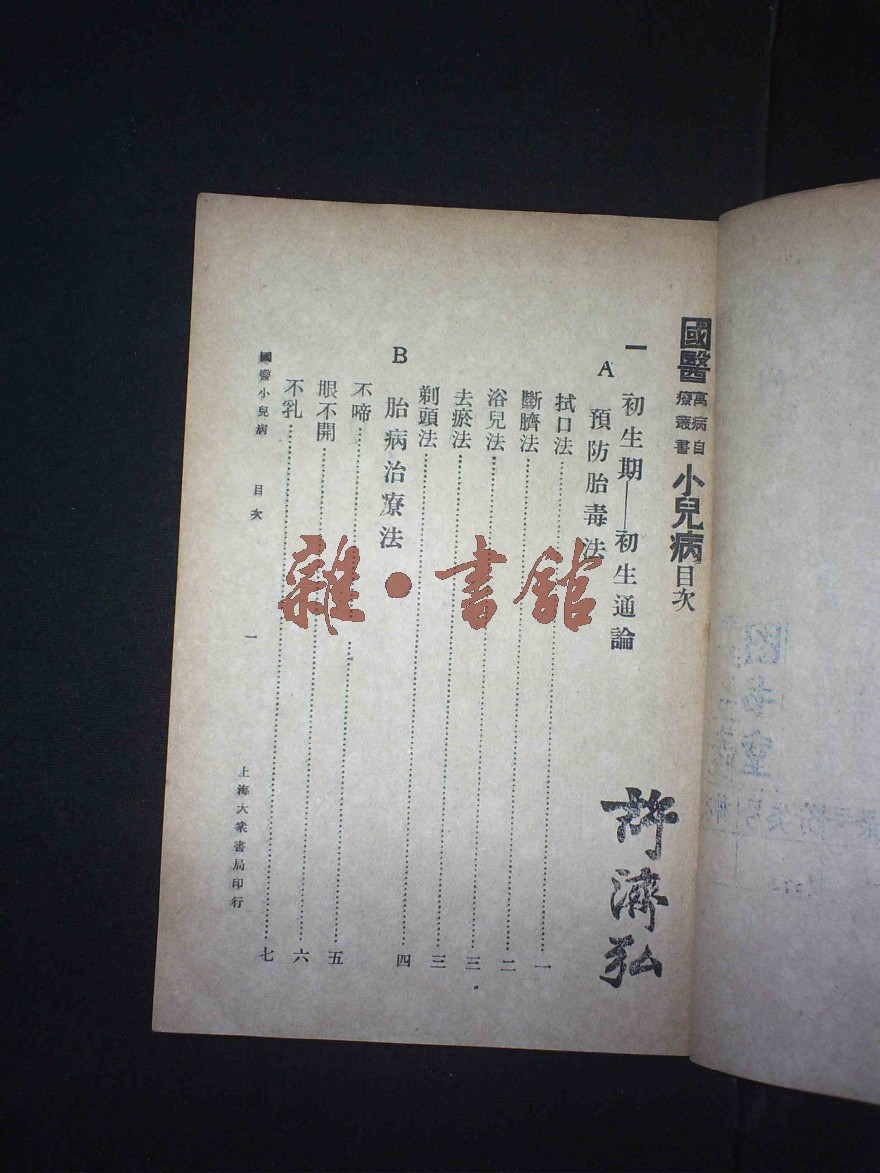 國醫萬病自療叢書小兒病目次
一 初生期——初生通論
A 預防胎毒法
拭口法……一
斷臍法……二
浴兒法……三
去瘀法……三
剃頭法……四
B 胎病治療法
不啼……五
眼不開……六
不乳……七
國醫小兒病 目次 一 上海大衆書局印行
許濟弘
雜·書館